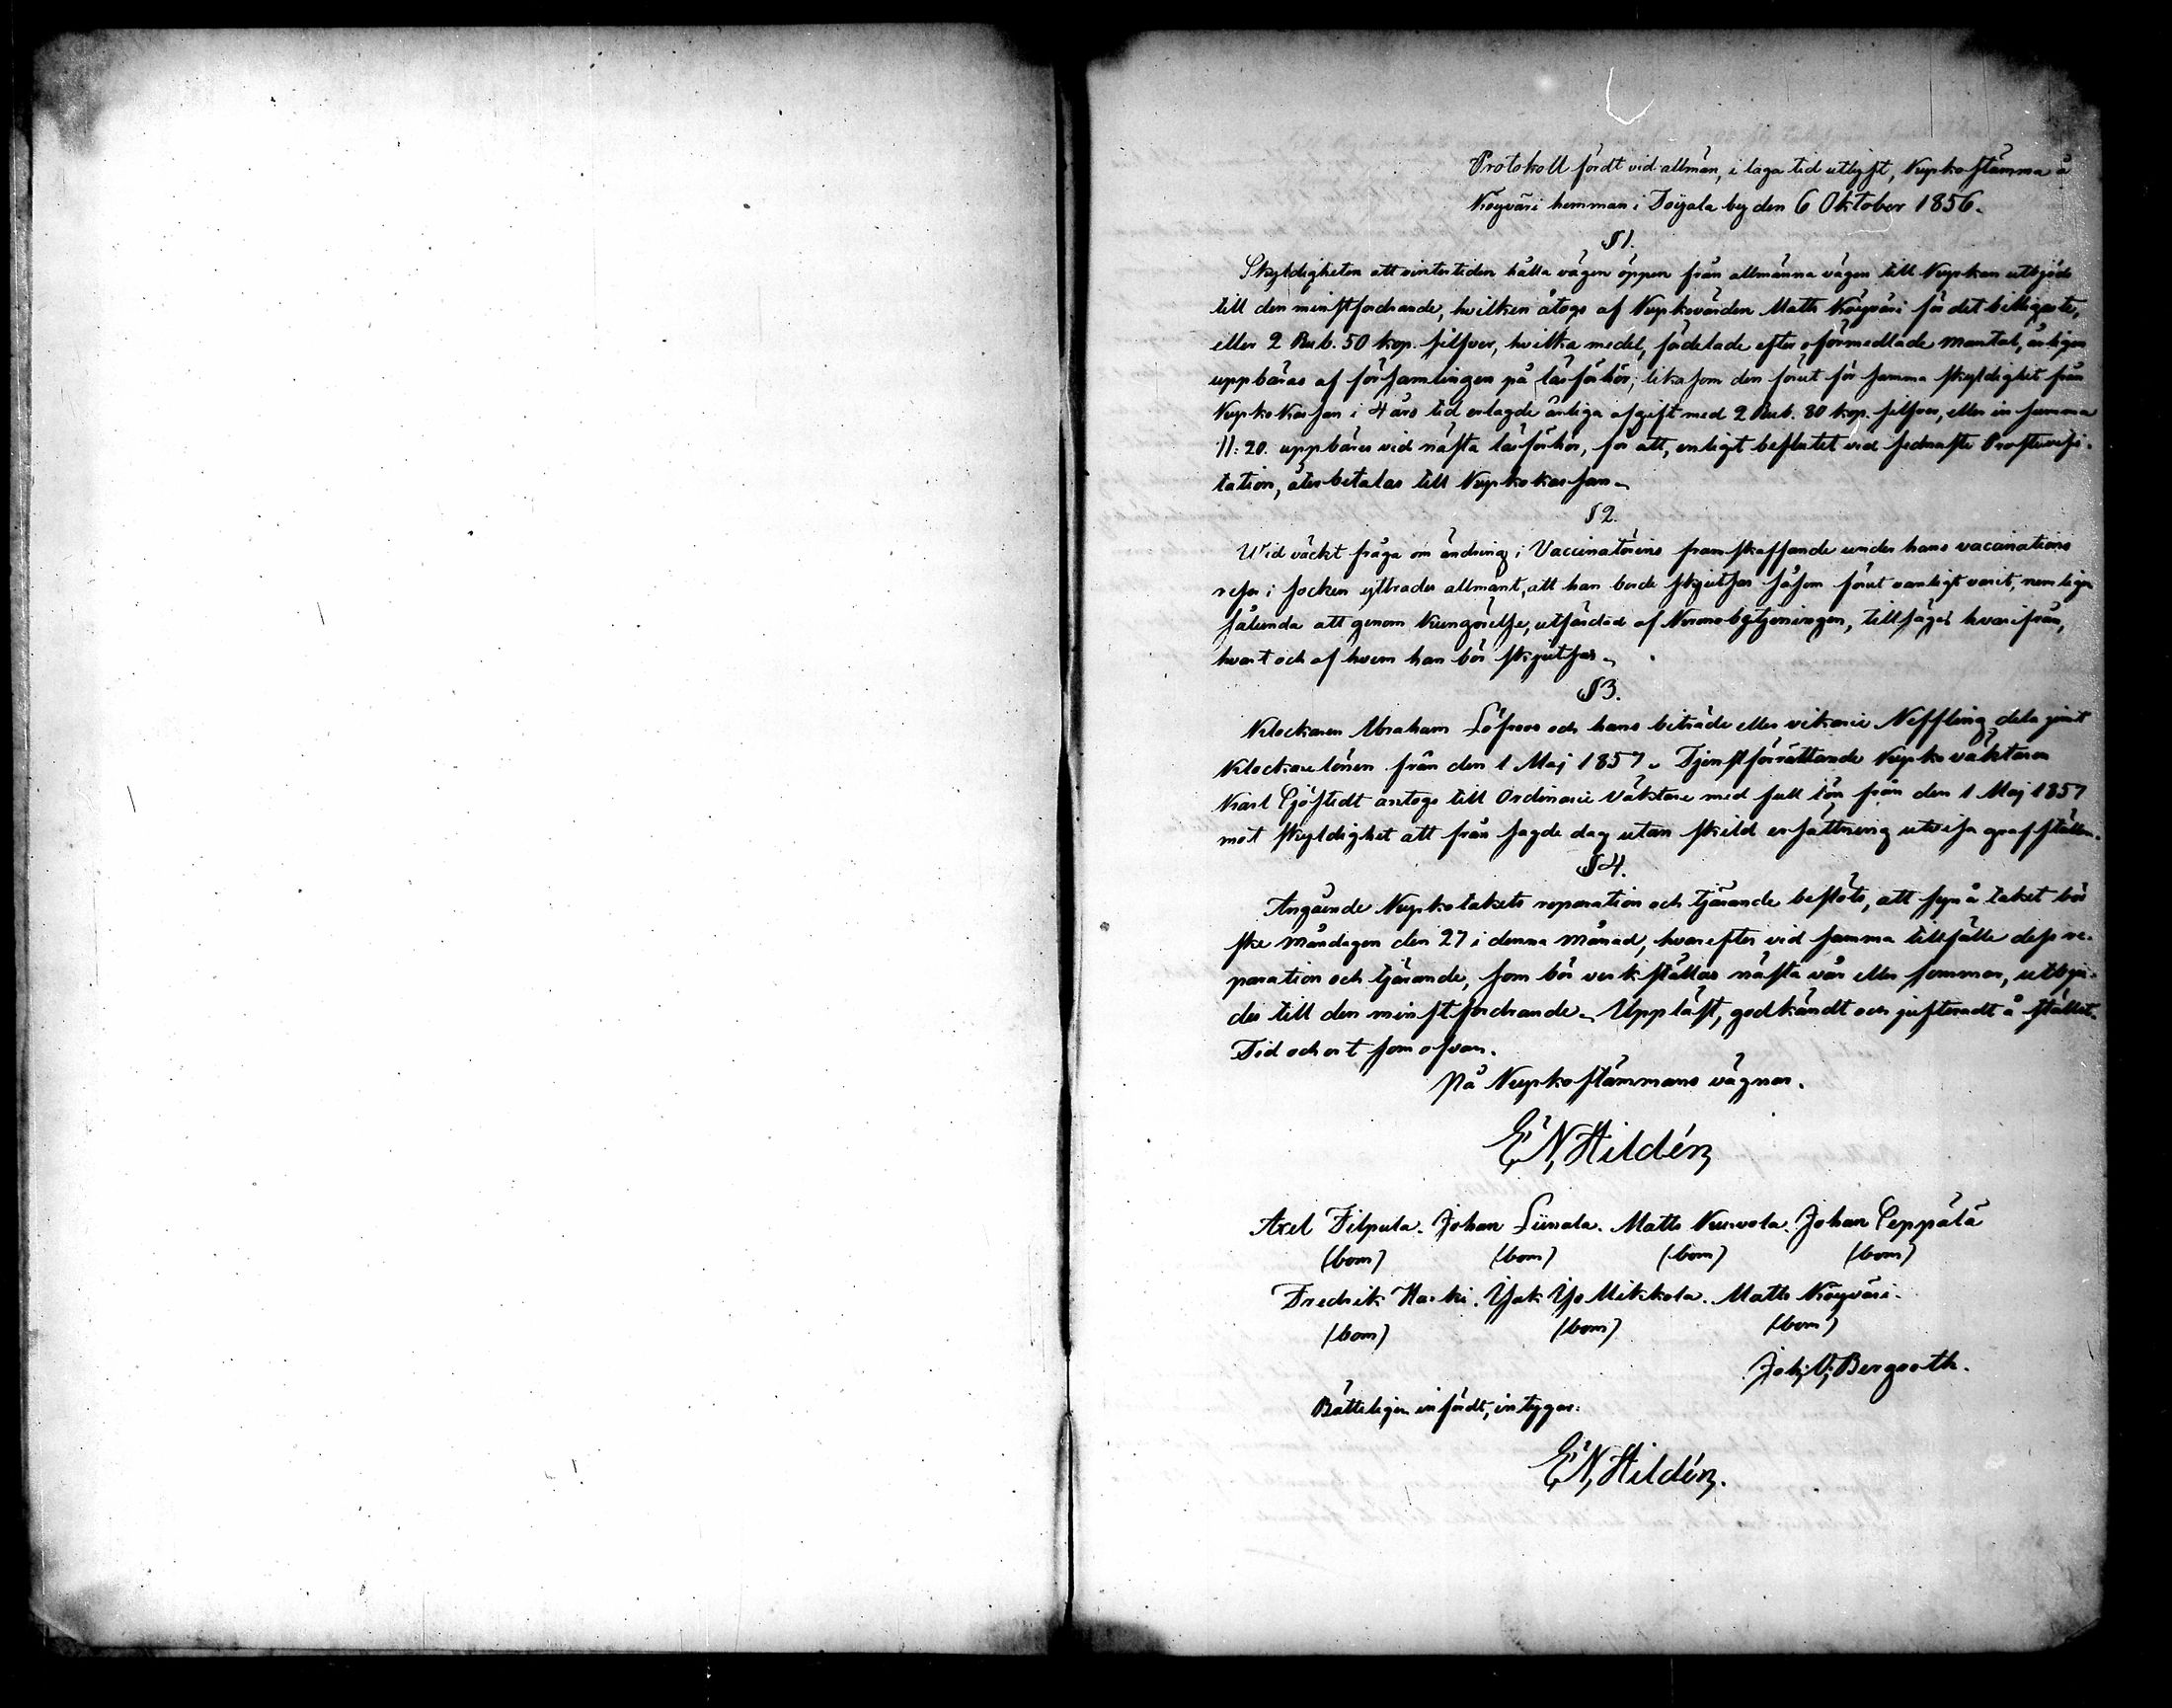 Protokoll fördt vid allmän, i laga tid utlyst, Kyrkostämma å
Köyväri hemman i Toijala by den 6 Oktober 1856.
§ 1.
Skyldigheten att vintertiden hålla vägen öppen från allmänna vägen till Kyrkan utbjöds
till den minstfordrande, hvilken åtogs af Kyrkovärden Matts Köyväri för det billigaste,
eller 2 Rub. 50 kop. silfver, hvilka medel, fördelade efter oförmedlade mantal, årligen
uppbäras af församlingen på läsförhör; likasom den förut för samma skyldighet från
Kyrkokassan i 4 års tid erlagde årliga afgift med 2 Rub. 80 kop. silfver, eller in summa
11: 20. uppbäres vid nästa läsförhör, för att, enligt beslutet vid sednaste Prostevisi-
tation, återbetalas till Kyrkokassan.
§ 2.
Wid väckt fråga om ändring i Vaccinatörens framskaffande under hans vaccinations
resor i socken yttrades allmänt, att han borde skjutsas såsom förut vanligt varit, nemligen
sålunda att genom Kungörelse, utfärdad af Kronobetjeningen, tillsäges hvarifrån,
hvart och af hvem han bör skjutsas.
§ 3.
Klockaren Abraham Löfroos och hans biträde eller vikarie Neffling dela jemt
Klockarelönen från den 1 Maj 1857. Tjenstförrättande Kyrkoväktaren
Karl Sjöstedt antogs till Ordinarie Väktare med full lön från den 1 Maj 1857
mot skyldighet att från sagde dag utan skild ersättning utvisa grafställen.
§ 4.
Angående Kyrkotakets reparation och tjärande beslöts, att syn å taket bör
ske Måndagen den 27 i denna Månad, hvarefter vid samma tillfälle dess re-
paration och tjärande, som bör verkställas nästa vår eller sommar, utbju-
des till den minstfordrande. Uppläst, godkändt och justeradt å stället.
Tid och ort som ofvan.
På Kyrkostämmans vägnar.
E. N. Hildén
Axel Filpula. Johan Liinala. Matts Kurvola. Johan Seppälä
(bom) (bom) (bom) (bom)
Fredrik Harki. Isak Iso Mikkola. Matts Köyväri.
(bom) (bom) (bom)
Joh. V. Bergroth.
Rätteligen infördt, intygar:
E. N. Hildén.